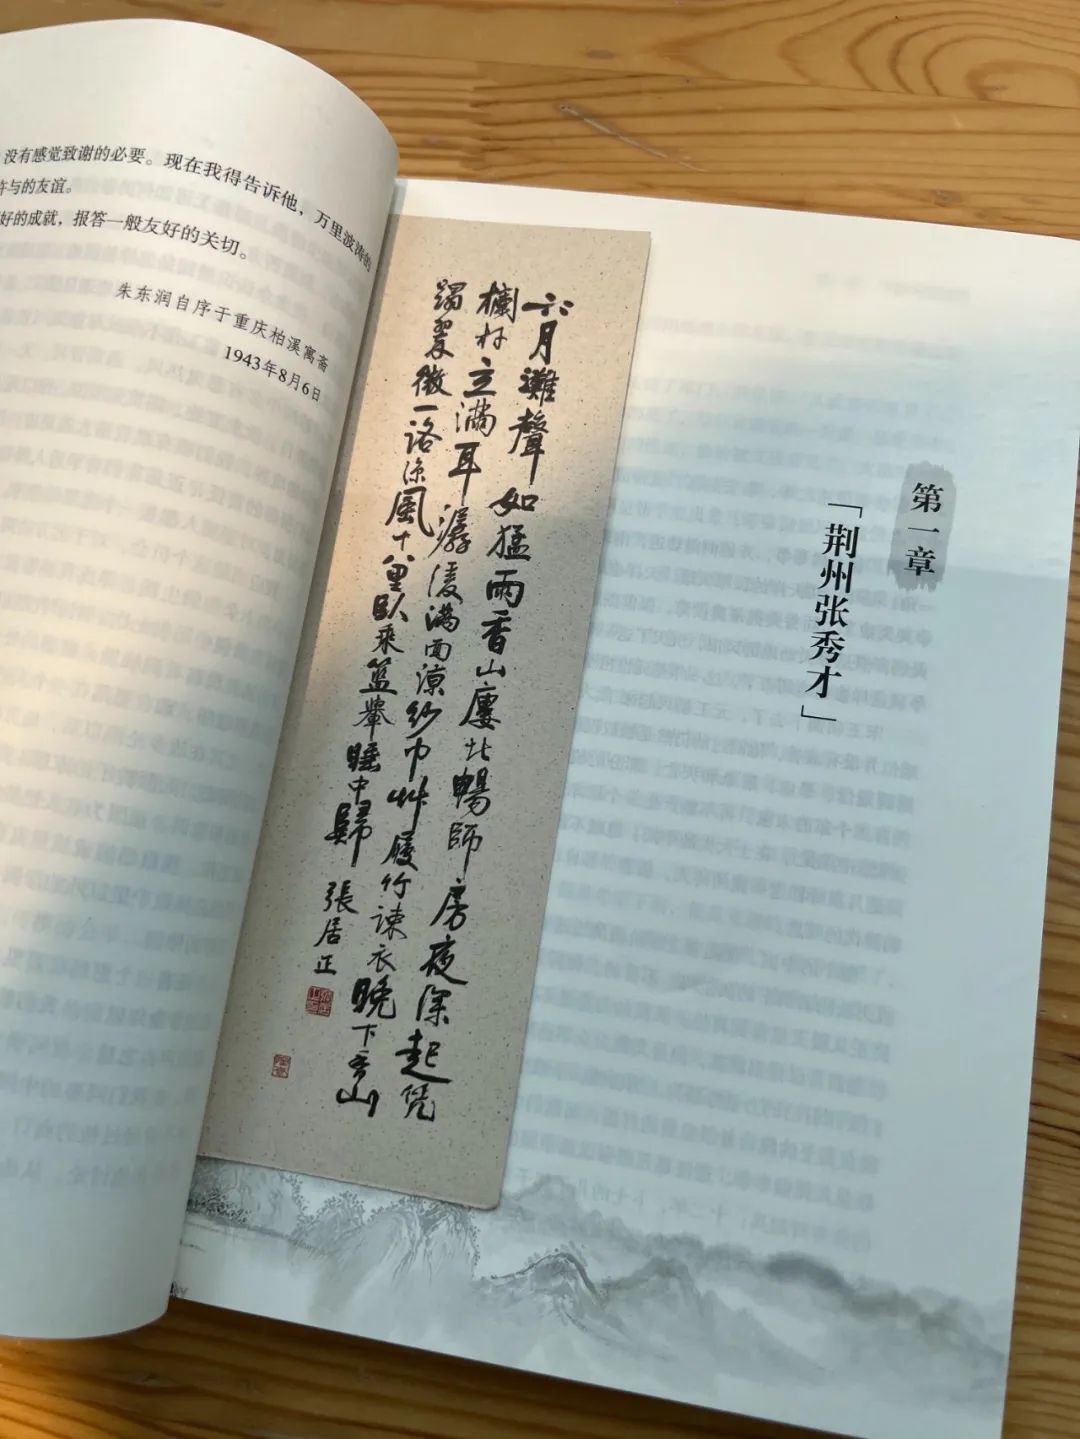 没有感觉致谢的必要。现在我得告诉他，万里波涛的
与的友谊。
好的成就，报答一般友好的关切。
朱东润自序于重庆柏溪寓斋
1943年8月6日
第一章
「荆州张秀才」
六月灘聲如猛雨香山廔北暢師房夜深起凭
欄杆立滿耳潺湲滿面涼紗巾艸履竹疎衣晚下香山
蹋翠微一路涼風十八里臥乘籃轝睡中歸
張居正